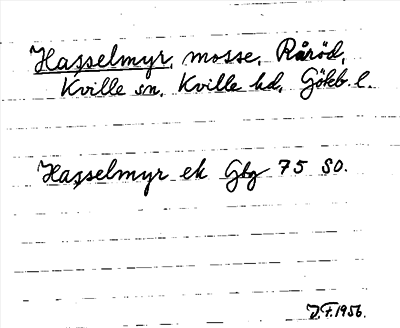 Hasselmyr, mosse, Råröd,
Kville sn, Kville hd, Gökb. l.
Hasselmyr ek Gbg 75 SO.
J.F. 1956.